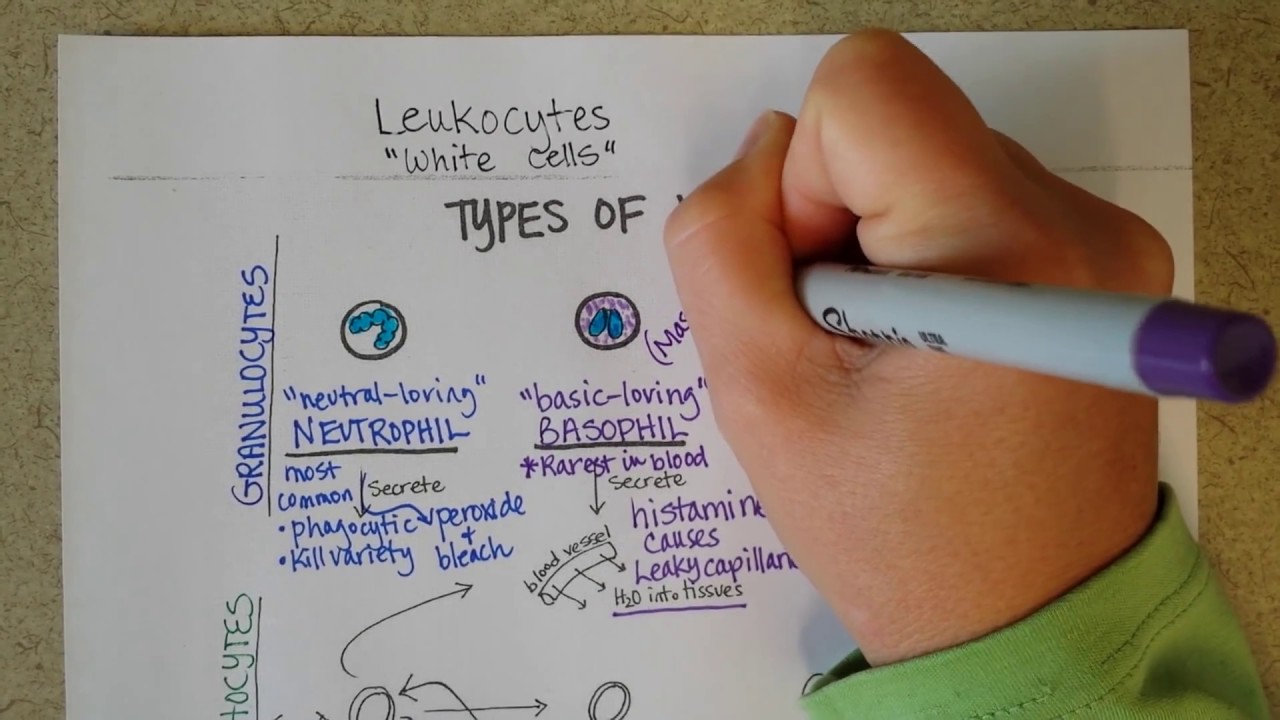 Leukocytes
"White cells"
TYPES OF
GRANULOCYTES
"neutral-loving"
NEUTROPHIL
most
common
Secrete
• phagocytic
peroxide
+
• Kill variety
bleach
"basic-loving"
BASOPHIL
*Rarest in blood
Secrete
histamine
causes
Leaky capillar
blood vessel
H2O into tissues
Sharpie
ULTRA